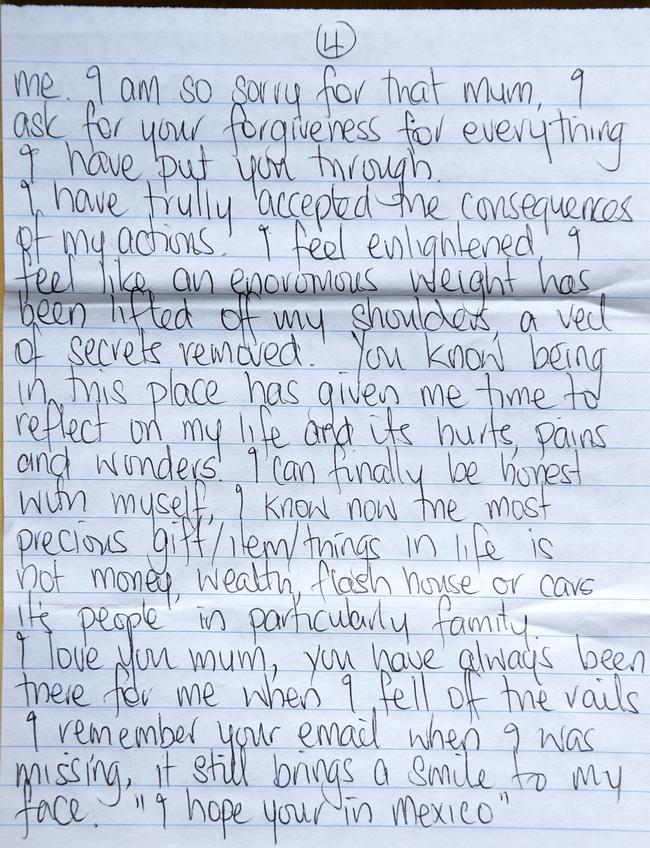 4
me. I am so sorry for that mum, I
ask for your forgiveness for everything
I have put you through.
I have trully accepted the consequences
of my actions. I feel enlightened, I
feel like an enoromous weight has
been lifted off my shoulders, a veil
of secrets removed. You know being
in this place has given me time to
reflect on my life and its hurts, pains
and wonders. I can finally be honest
with myself, I know now the most
precious gift/item/things in life is
not money, wealth, flash house or cars
it's people in particularly family.
I love you mum, you have always been
there for me when I fell of the rails
I remember your email when I was
missing, it still brings a smile to my
face. "I hope your in Mexico"